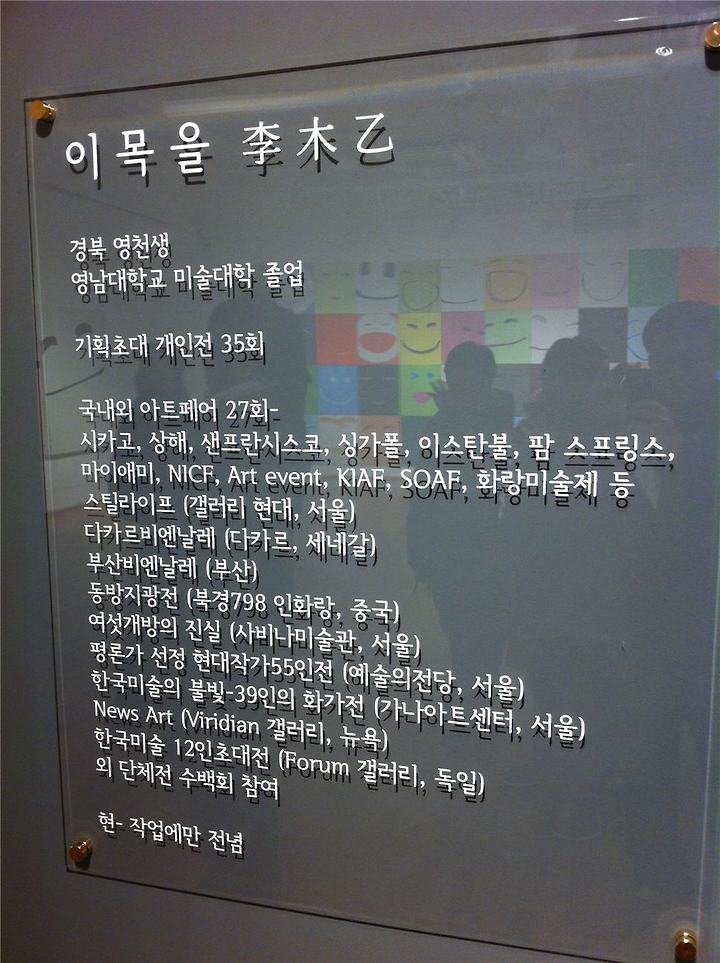 이목을 李木乙
경북 영천생
영남대학교 미술대학 졸업
기획초대 개인전 35회
국내외 아트페어 27회-
시카고, 상해, 샌프란시스코, 싱가폴, 이스탄불, 팜 스프링스,
마이애미, NICF, Art event, KIAF, SOAF, 화랑미술제 등
스틸라이프 (갤러리 현대, 서울)
다카르비엔날레 (다카르, 세네갈)
부산비엔날레 (부산)
동방지광전 (북경798 인화랑, 중국)
여섯개방의 진실 (사비나미술관, 서울)
평론가 선정 현대작가55인전 (예술의전당, 서울)
한국미술의 불빛-39인의 화가전 (가나아트센터, 서울)
News Art (Viridian 갤러리, 뉴욕)
한국미술 12인초대전 (Forum 갤러리, 독일)
외 단체전 수백회 참여
현- 작업에만 전념